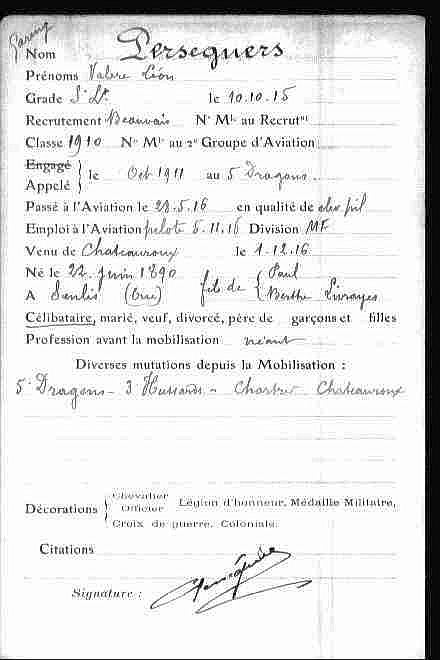 Nom Persequers
Prénoms Valere Léon
Grade S' Lt le 10.10.15
Recrutement Beauvais N° Mle au Recrutnt
Classe 1910 N° Mle au 2e Groupe d'Aviation
Engagé
Appelé } le Oct 1911 au 5 Dragons
Passé à l'Aviation le 29.5.16 en qualité de elev pil
Emploi à l'Aviation pilote 5.11.16 Division MF
Venu de Chateauroux le 1.12.16
Né le 22 Juin 1890 fils de { Paul
A Senlis (Oise) Berthe
Célibataire, marié, veuf, divorcé, père de garçons et filles
Profession avant la mobilisation néant
Diverses mutations depuis la Mobilisation :
5e Dragons - 3 Hussards - Chartres Chateauroux
Chevalier
Décorations { Officier Légion d'honneur, Médaille Militaire,
Croix de guerre, Coloniale.
Citations
Signature :